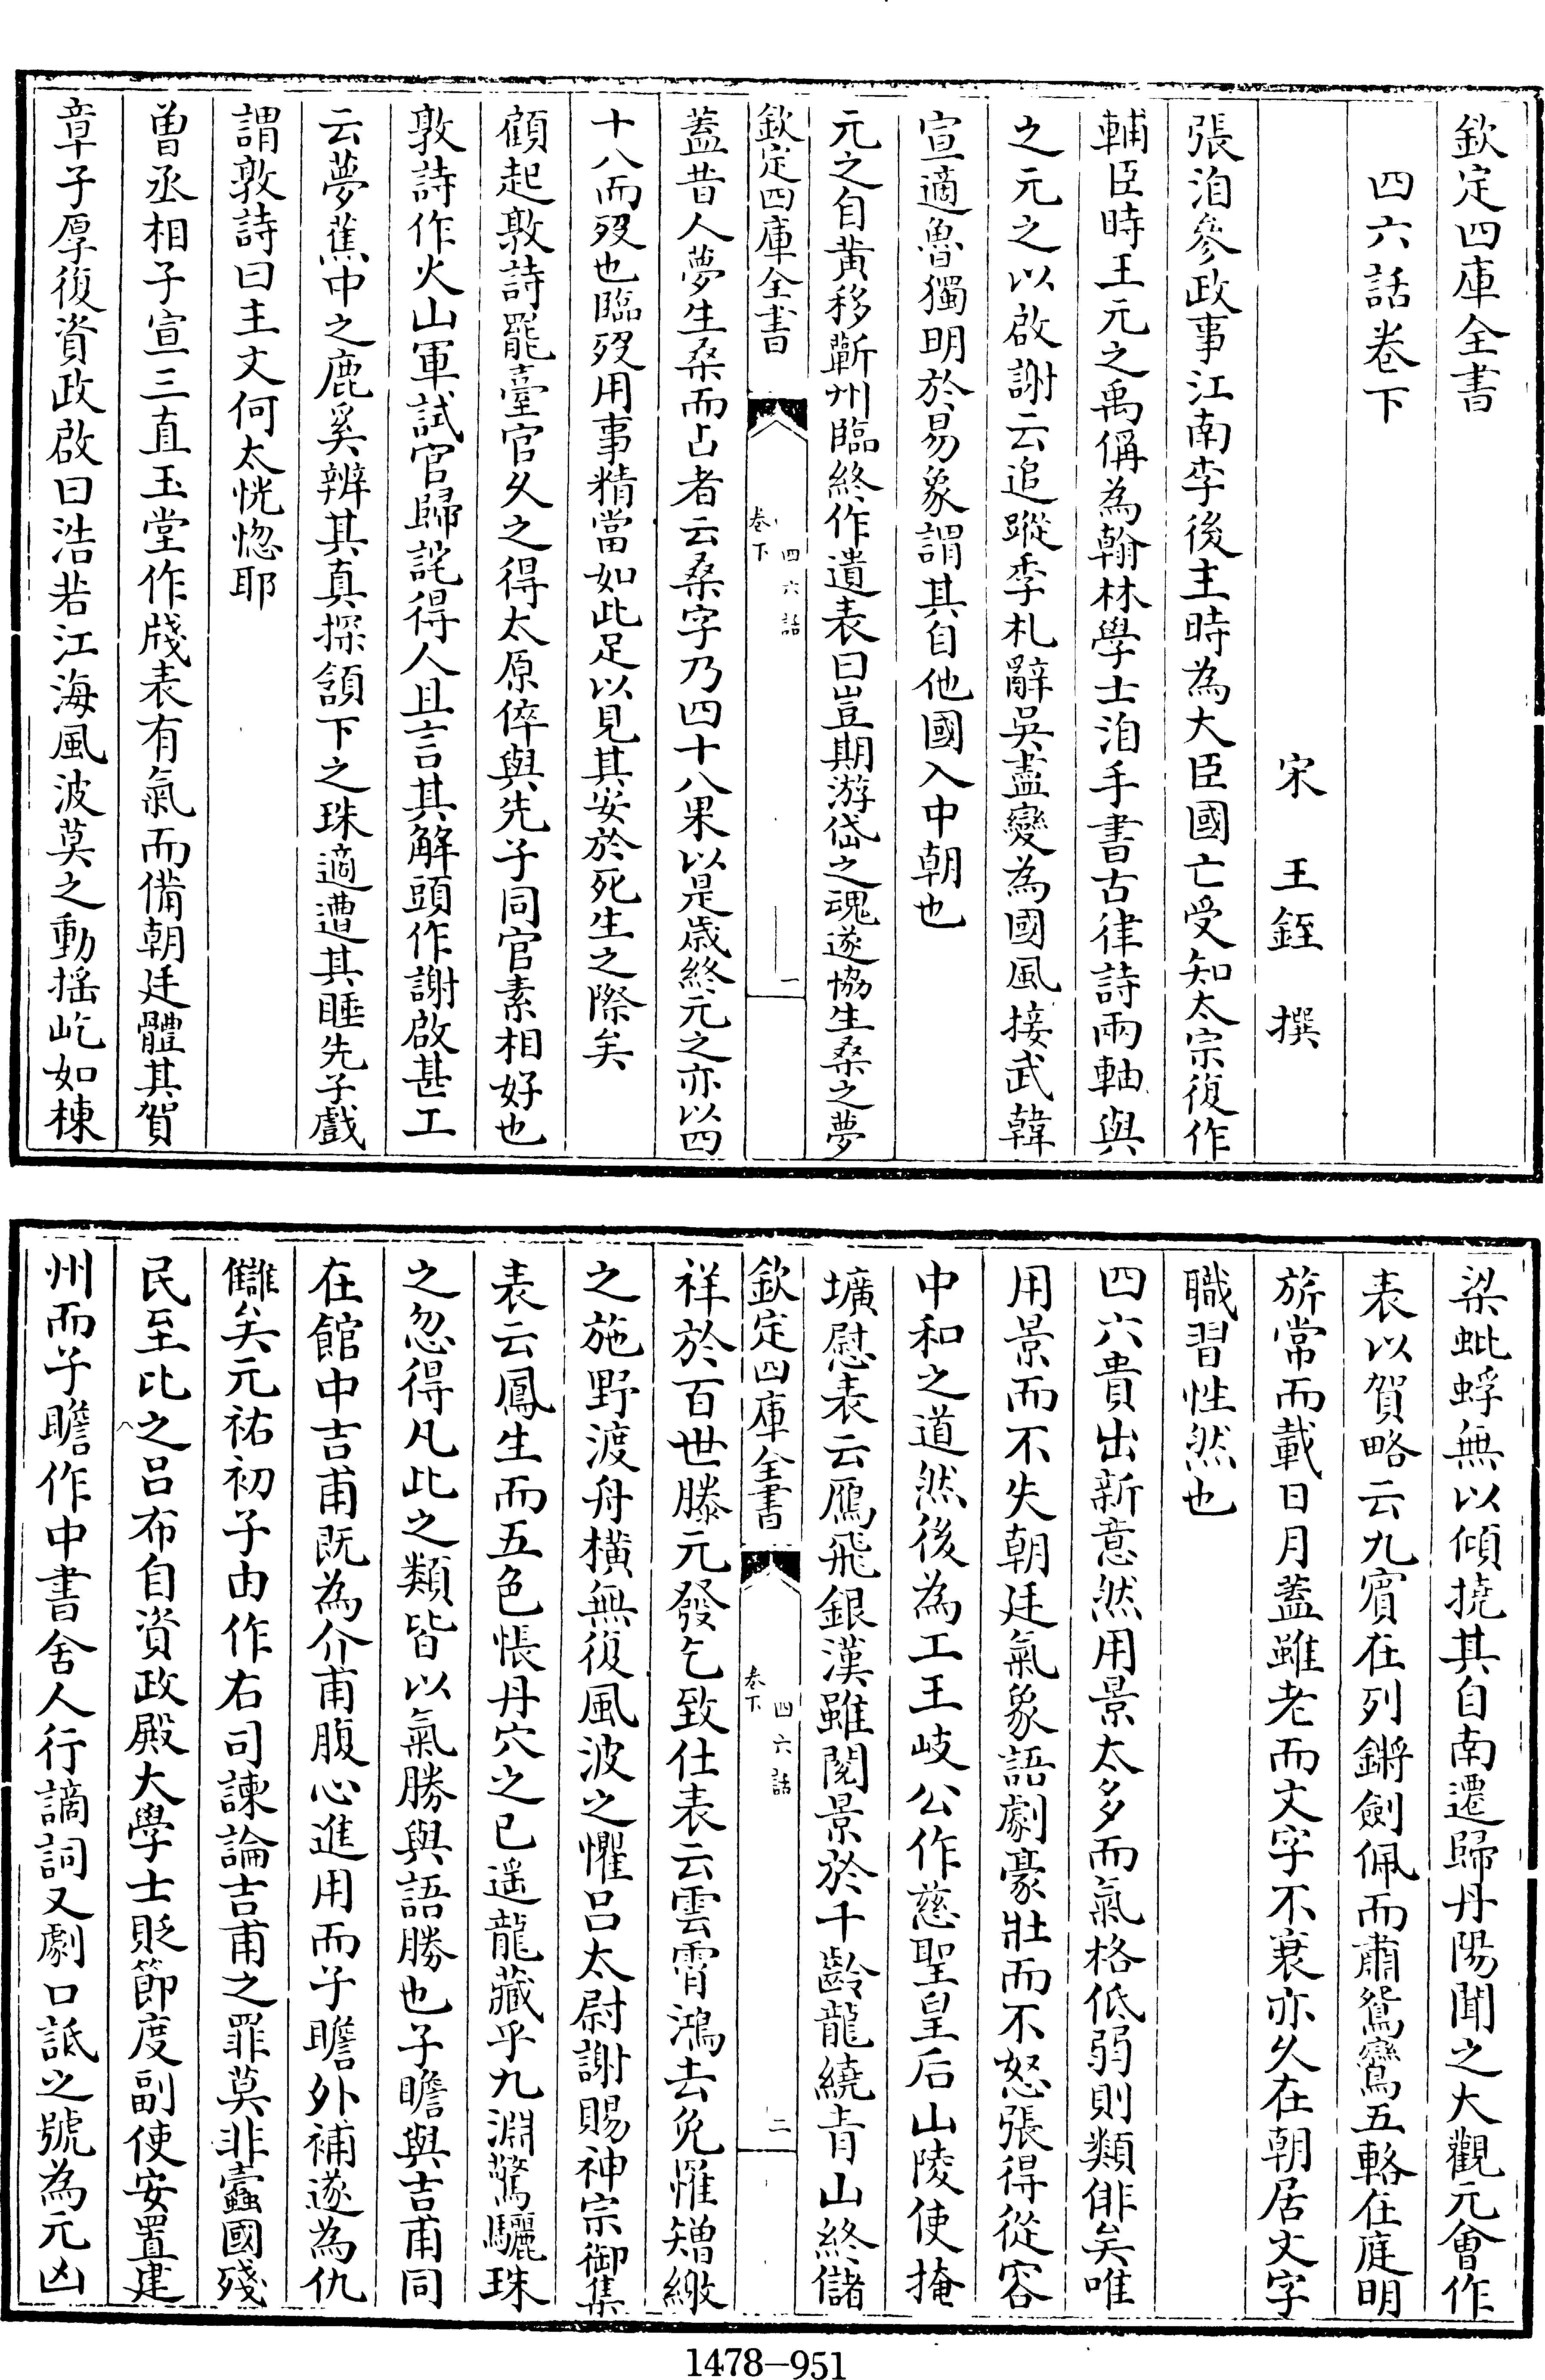 欽定四庫全書
四六話卷下
宋 王銍 撰
張洎參政事江南李後主時為大臣國亡受知太宗復作
輔臣時王元之禹偁為翰林學士洎手書古律詩兩軸與
之元之以啟謝云追蹤季札辭吳盡變為國風接武韓
宣適魯獨明於易象謂其自他國入中朝也
元之自黃移蘄州臨終作遺表曰豈期游岱之魂遂協生桑之夢
欽定四庫全書
四六話
卷下
一
蓋昔人夢生桑而占者云桑字乃四十八果以是歲終元之亦以四
十八而歿也臨歿用事精當如此足以見其安於死生之際矣
顧起敦詩罷臺官久之得太原倅與先子同官素相好也
敦詩作火山軍試官歸詫得人且言其解頭作謝啟甚工
云夢蕉中之鹿奚辨其真探頷下之珠適遭其睡先子戲
謂敦詩曰主文何太恍惚耶
曾丞相子宣三直玉堂作牋表有氣而備朝廷體其賀
章子厚復資政啟曰浩若江海風波莫之動搖屹如棟
梁蚍蜉無以傾撓其自南遷歸丹陽聞之大觀元會作
表以賀略云九賓在列鏘劍佩而肅鴛鸞五輅在庭明
旂常而載日月蓋雖老而文字不衰亦久在朝居文字
職習性然也
四六貴出新意然用景太多而氣格低弱則類俳矣唯
用景而不失朝廷氣象語劇豪壯而不怒張得從容
中和之道然後為工王岐公作慈聖皇后山陵使掩
壙慰表云鴈飛銀漢雖閱景於千齡龍繞青山終儲
欽定四庫全書
四六話
卷下
二
祥於百世滕元發乞致仕表云雲霄鴻去免罹矰繳
之施野渡舟橫無復風波之懼呂太尉謝賜神宗御集
表云鳳生而五色悵丹穴之已遥龍藏乎九淵驚驪珠
之忽得凡此之類皆以氣勝與語勝也子瞻與吉甫同
在館中吉甫既為介甫腹心進用而子瞻外補遂為仇
讎矣元祐初子由作右司諫論吉甫之罪莫非蠹國殘
民至比之呂布自資政殿大學士貶節度副使安置建
州而子瞻作中書舍人行謫詞又劇口詆之號為元凶
1478-951